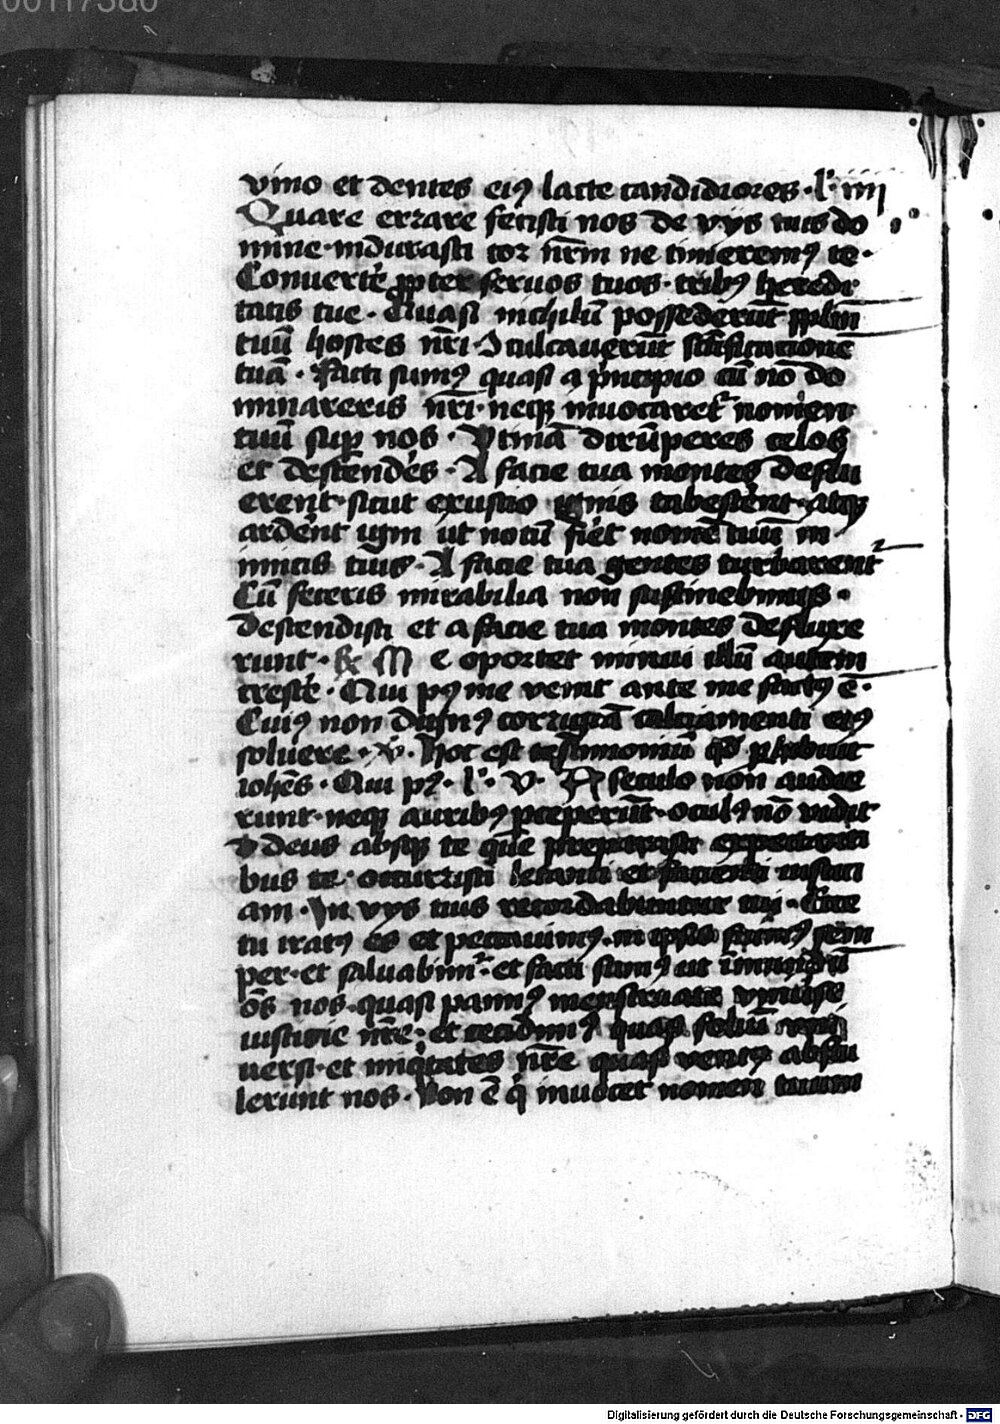 00117380
vino et dentes eiꝰ lacte candidiores · l̓ · iiij
Quare errare fecisti nos de vijs tuis do
mine · indurasti cor nr̄m ne timeremꝰ te ·
Convertē ꝓpter servos tuos · tribꝰ heredi
tatis tue · Quasi nichilū possederūt pplm̄
tuū hostes nr̄i · Iculcaverūt sc̄ificationē
tuā · Facti sumꝰ quasi a pͥncipio cū nō do
minareris nr̄i · neqꝫ invocaretͬ nomen
tuū suꝑ nos · Vtinā dirūperes celos
et descenderes · A facie tua montes deflu
erent · sicut exustio ignis tabescērt · atqꝫ
ardērt igni ut notū fiēt nomē tuū in
imicis tuis · A facie tua gentes turbarentͬ
Cū feceris mirabilia non sustinebimꝰ ·
descendisti et a facie tua montes defluxe
runt · ℞ Me oportet minui illū autem
crescē · Qui pꝰ me venit ante me factꝰ ē ·
Cuiꝰ non dignꝰ corrigiā calciamenti eiꝰ
solvere · v · Hoc est testimoniū qd̄ ꝑhibuit
ioh̄es · Qui pꝰ · l̓ · v · A seculo non audie
runt · neqꝫ auribꝰ ꝑceperūt · oculꝰ nō vidit
deus absqꝫ te que preparasti expectanti
bus te · occurristi letanti et facienti iusticiam
am · In vijs tuis recordabuntur tui · Ecce
tu iratꝰ es et peccavimꝰ · in ipsis fuimꝰ sem
per · et salvabimͬ · et facti sumꝰ ut īmūdꝰ
oēs nos · quasi pannꝰ menstruate universe
iusticie nr̄e · et cecidimꝰ quasi foliū uni
versi · et iniqͥtates nr̄e quasi ventꝰ abstu
lerunt nos · Non ē qͥ invocet nomen tuum
Digitalisierung gefördert durch die Deutsche Forschungsgemeinschaft - DFG